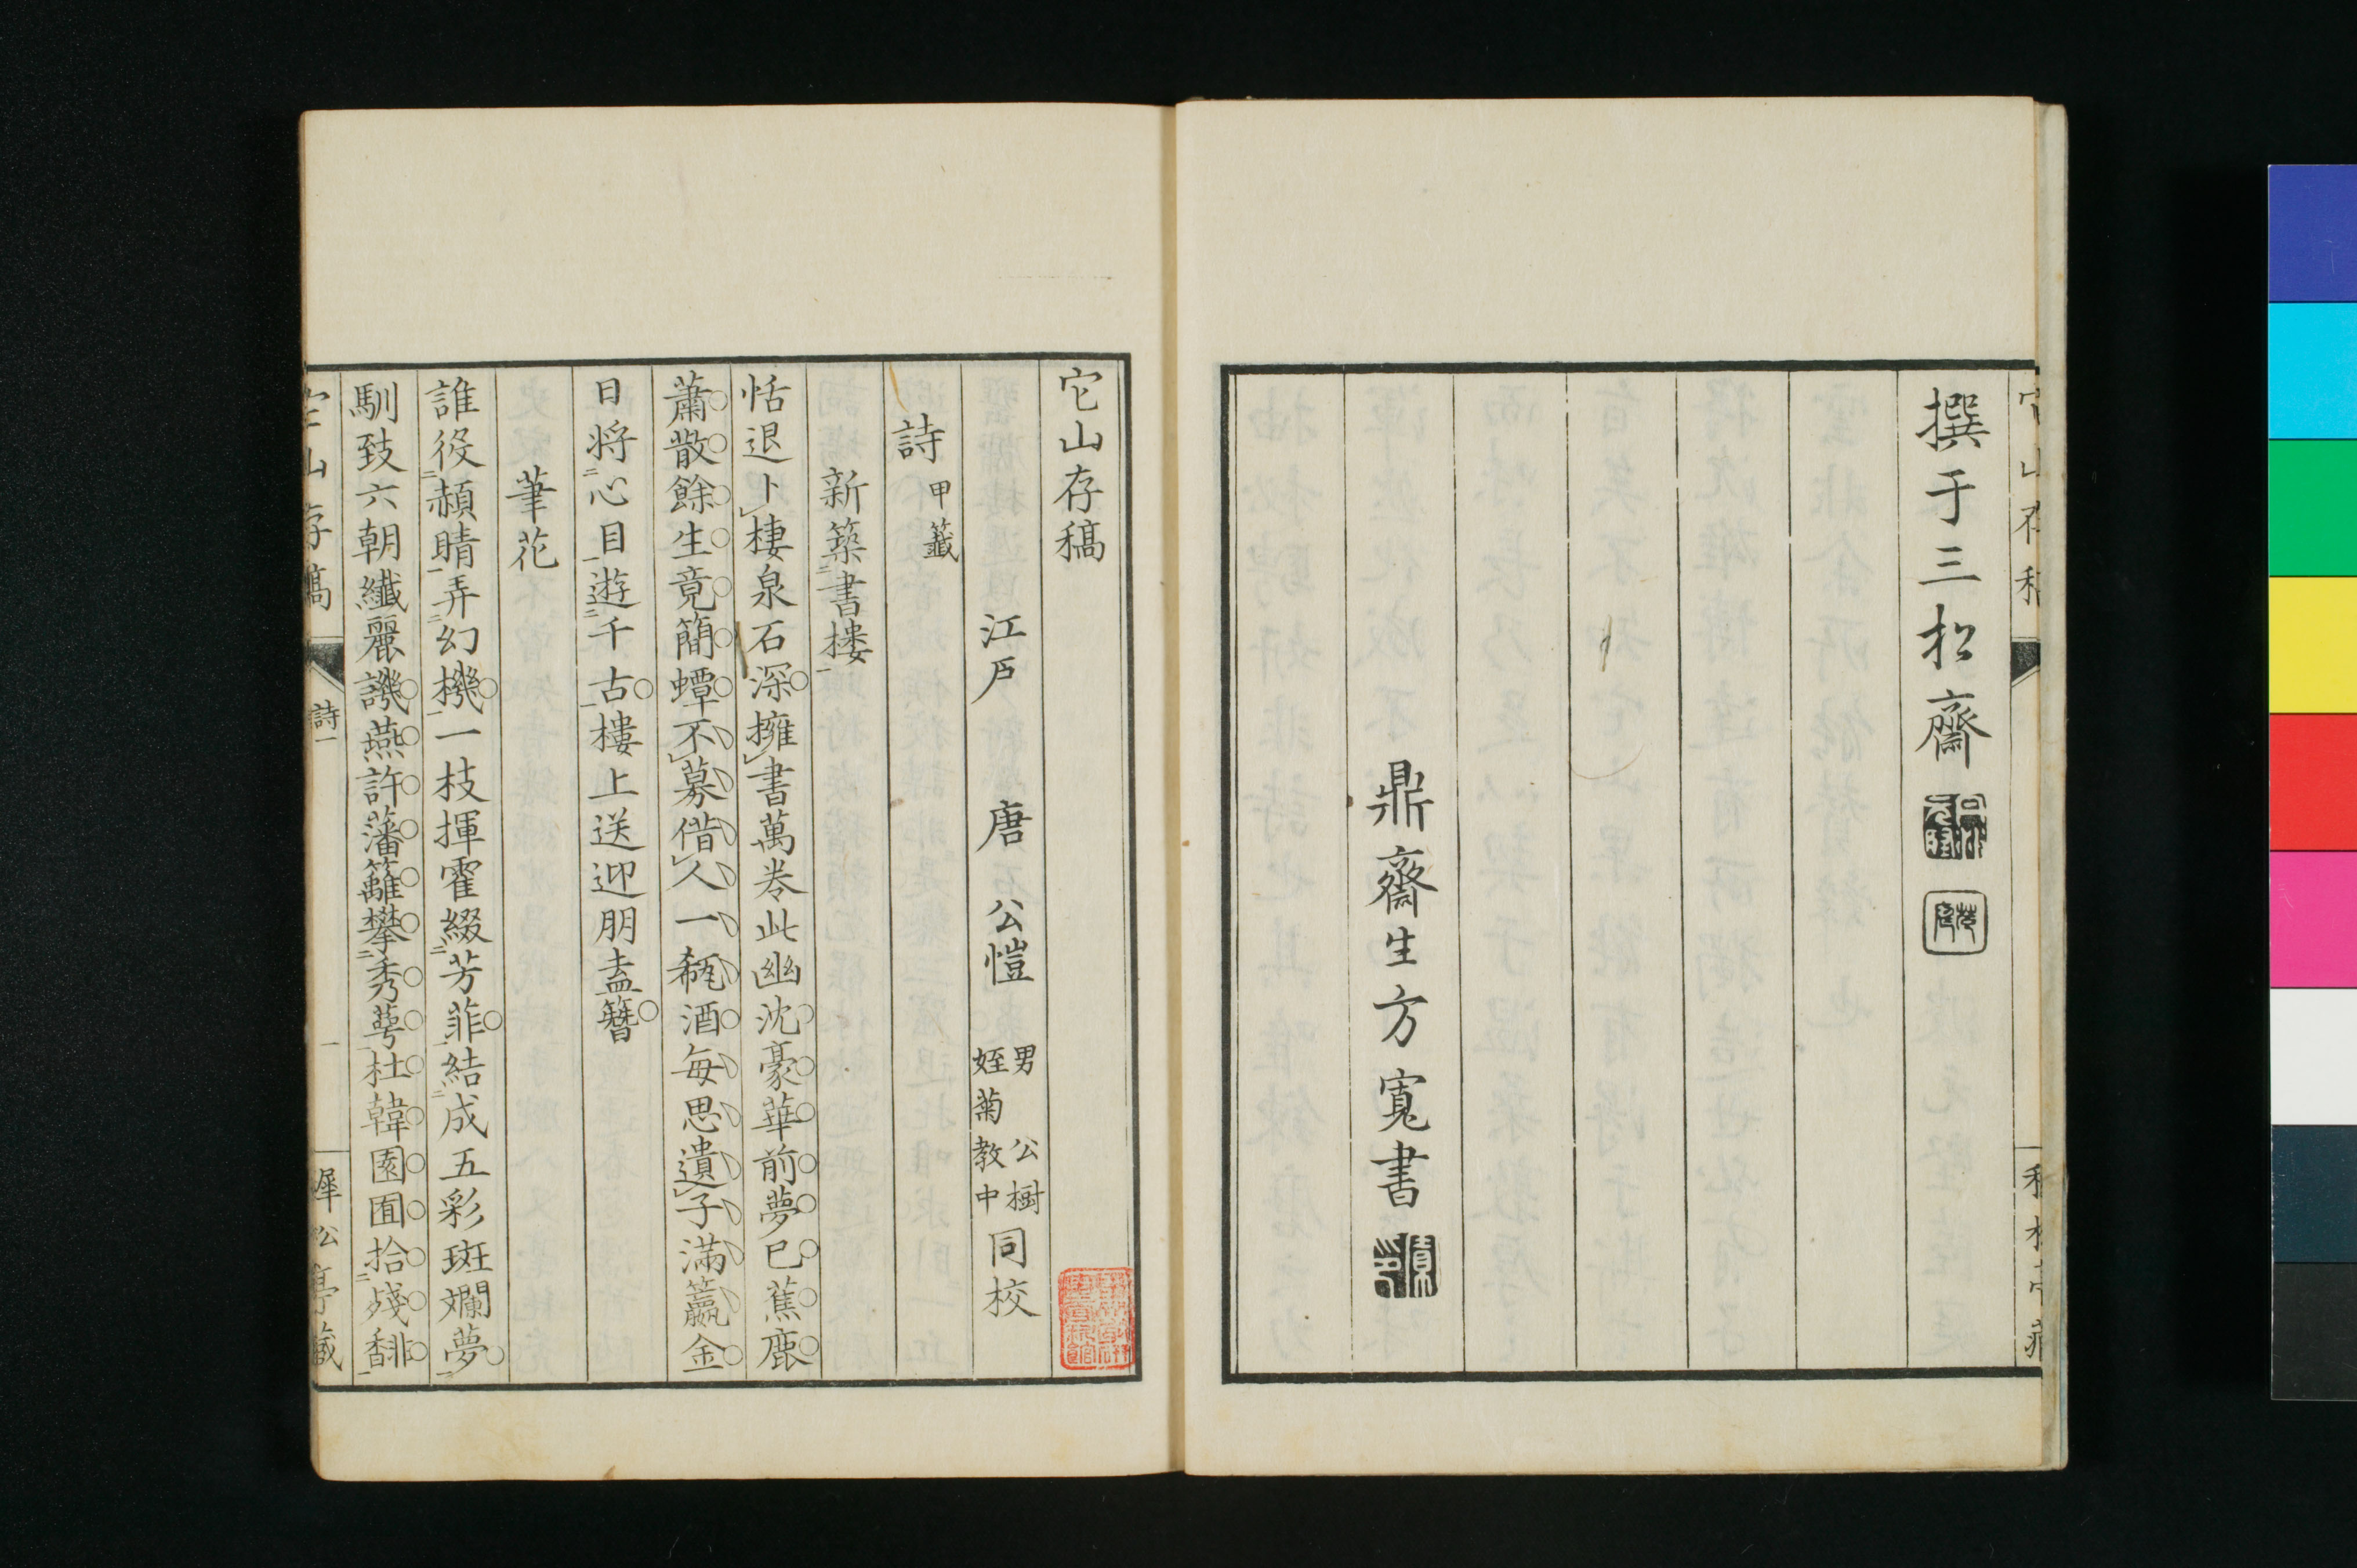 撰于三松齋
鼎齋生方寛書
它山存稿
江戶 唐 公愷 男 公樹 姪 菊教中 同校
詩 甲籤
新築書樓
恬退卜棲泉石深擁書萬卷此幽沈豪華前夢已蕉鹿
蕭散餘生竟簡蟫不募借人一瓻酒每思遺子滿籯金
日將心目遊千古樓上送迎朋盍簪
筆花
誰役頳晴弄幻機一枝揮霍綴芳菲結成五彩斑斕夢
馴致六朝纖麗譏燕許藩籬攀秀萼杜韓園囿拾殘馡
它山存稿
詩一
一
犀松亭藏